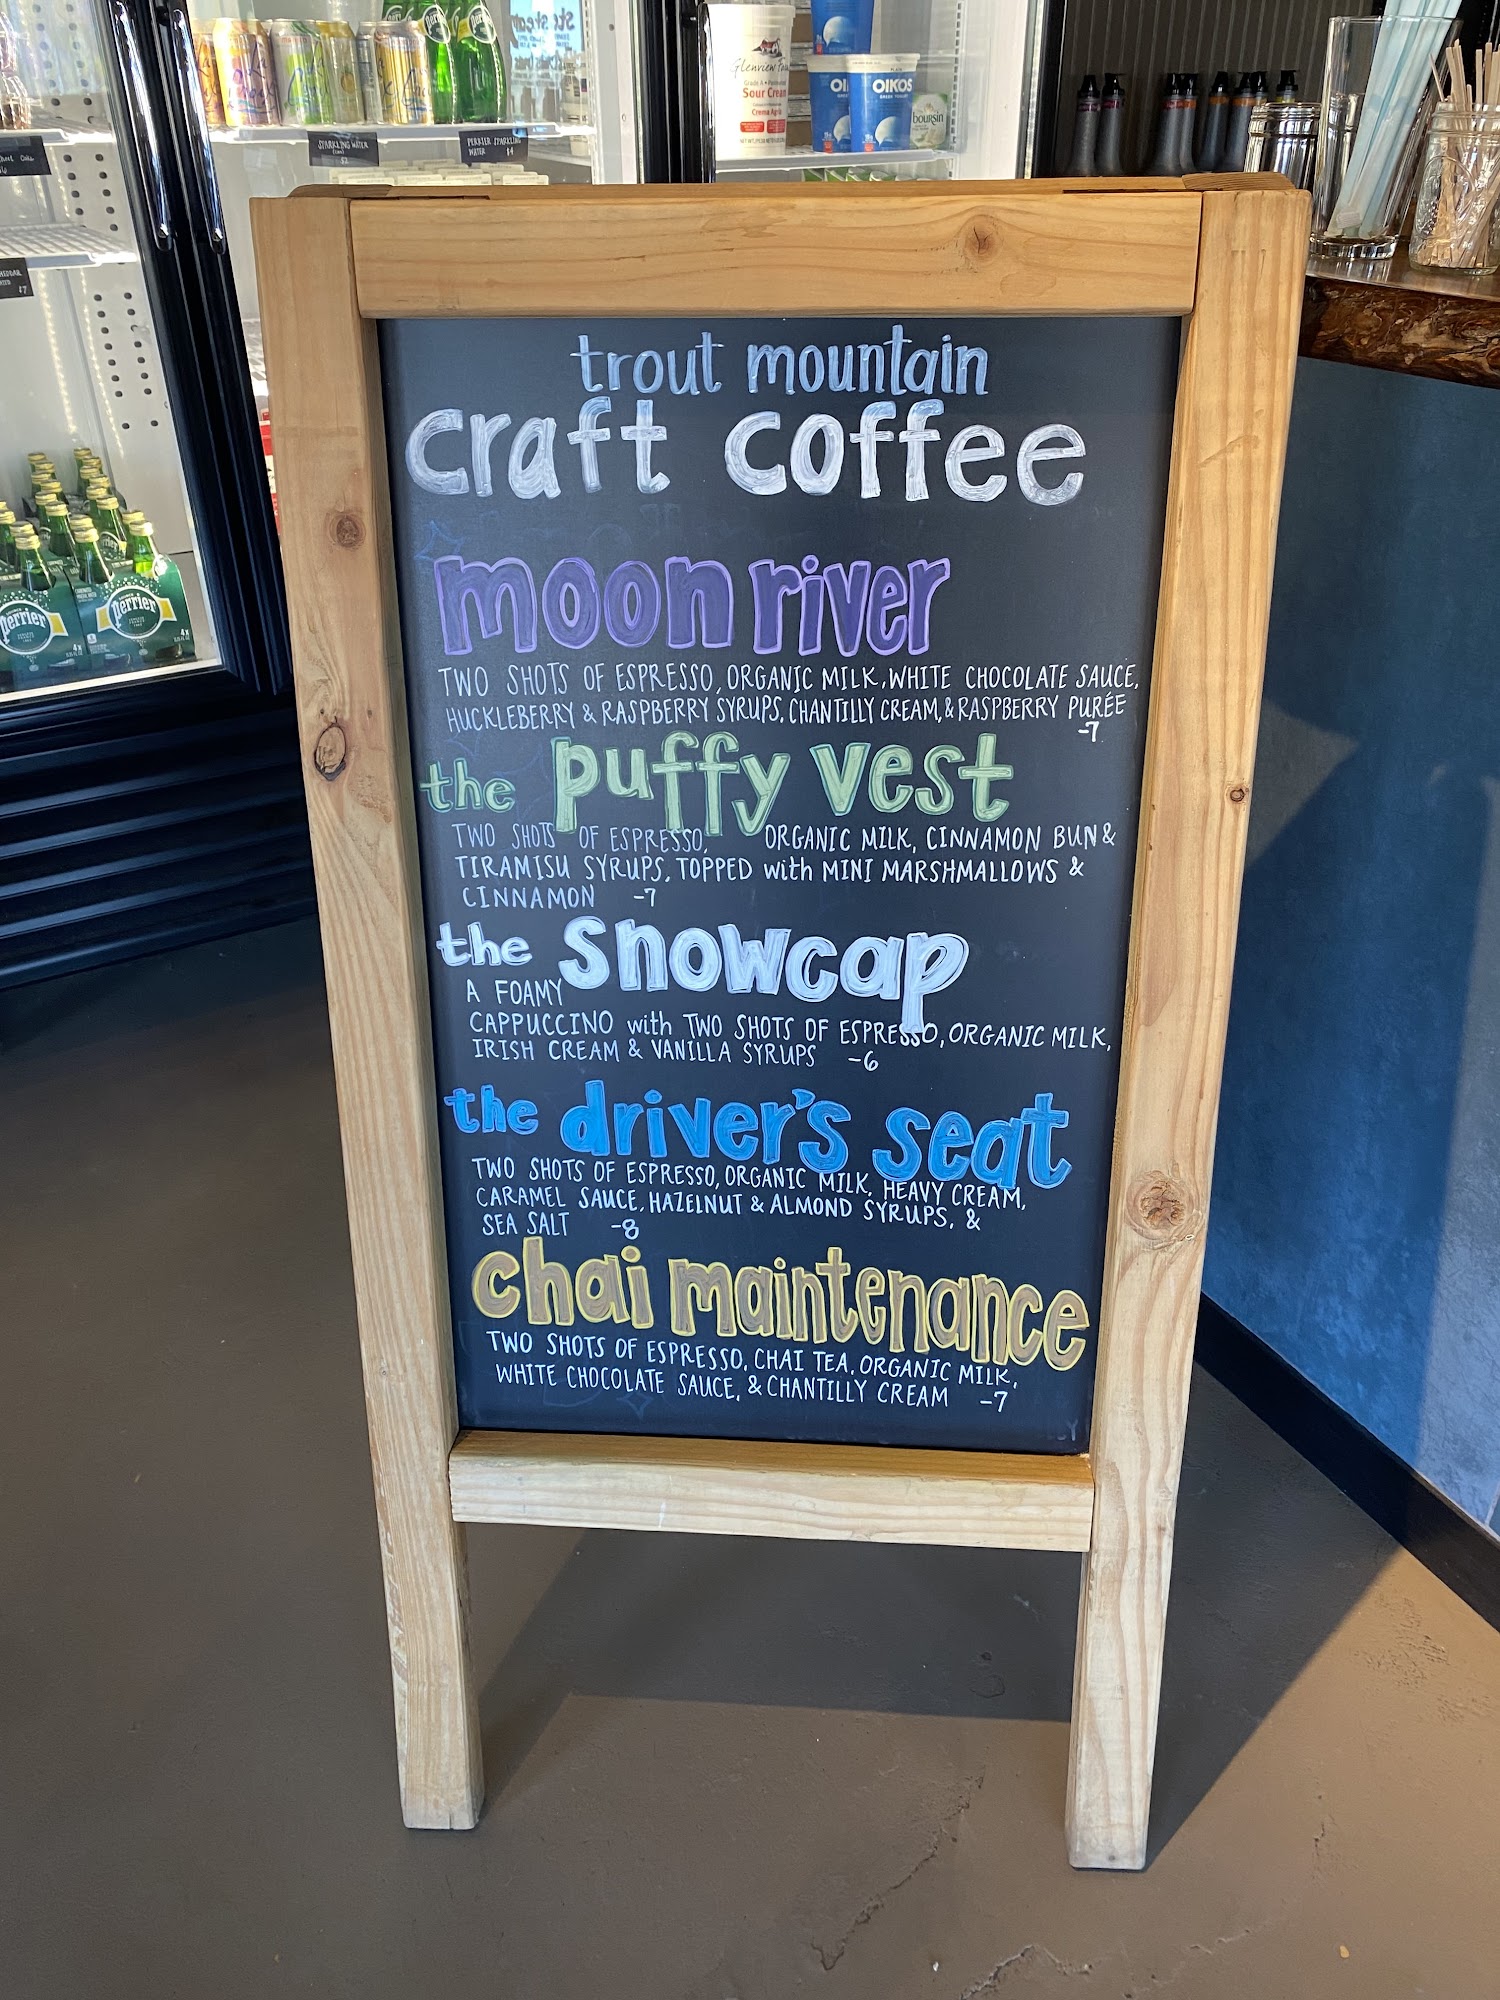 Perrier
Glenview Farms
Grade A
Sour Cream
Crema Agria
OIKOS
boursin
SPARKLING WATER
$2
PERRIER SPARKLING
WATER $4
$7
Perrier
Perrier
trout mountain
craft coffee
moon river
TWO SHOTS OF ESPRESSO, ORGANIC MILK, WHITE CHOCOLATE SAUCE,
HUCKLEBERRY & RASPBERRY SYRUPS, CHANTILLY CREAM, & RASPBERRY PURÉE
-7
the puffy vest
TWO SHOTS OF ESPRESSO, ORGANIC MILK, CINNAMON BUN &
TIRAMISU SYRUPS, TOPPED with MINI MARSHMALLOWS &
CINNAMON -7
the snowcap
A FOAMY
CAPPUCCINO with TWO SHOTS OF ESPRESSO, ORGANIC MILK,
IRISH CREAM & VANILLA SYRUPS -6
the driver's seat
TWO SHOTS OF ESPRESSO, ORGANIC MILK, HEAVY CREAM,
CARAMEL SAUCE, HAZELNUT & ALMOND SYRUPS, &
SEA SALT -8
chai maintenance
TWO SHOTS OF ESPRESSO, CHAI TEA, ORGANIC MILK,
WHITE CHOCOLATE SAUCE, & CHANTILLY CREAM -7